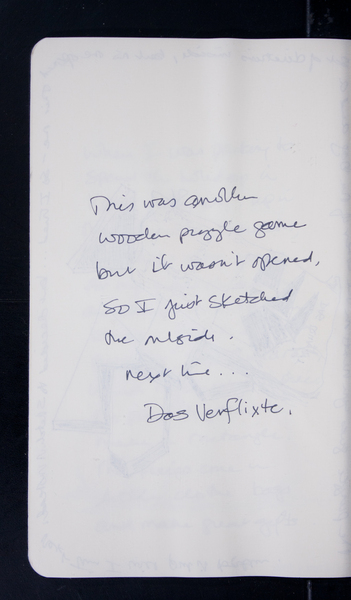 This was another
wooden puzzle game
but it wasn't opened,
so I just sketched
the outside.
next time...
Das Verflixte.